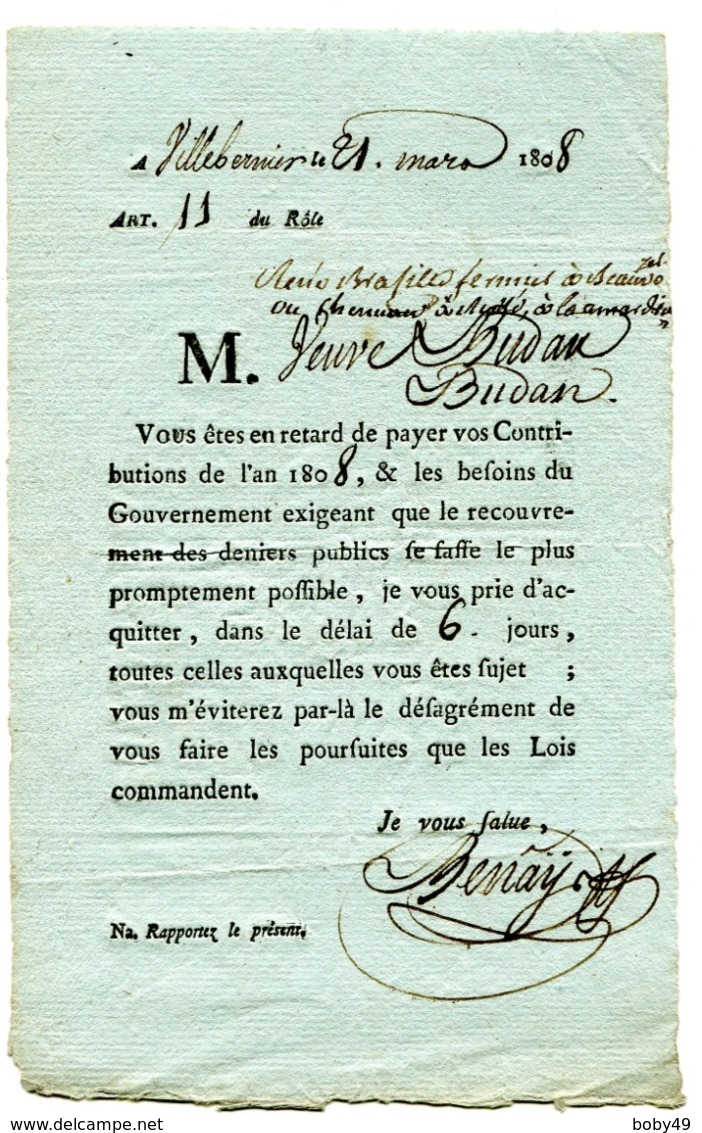 A Villebernier le 21. mars 1808
ART. 11 du Rôle
fermier à
ou à à la
M. Veuve Budan
Budan.
Vous êtes en retard de payer vos Contri-
butions de l'an 1808, & les beſoins du
Gouvernement exigeant que le recouvre-
ment des deniers publics ſe faſſe le plus
promptement poſſible, je vous prie d'ac-
quitter, dans le délai de 6. jours,
toutes celles auxquelles vous êtes ſujet ;
vous m'éviterez par-là le déſagrément de
vous faire les pourſuites que les Lois
commandent.
Je vous ſalue,
Na. Rapportez le préſent.
boby49